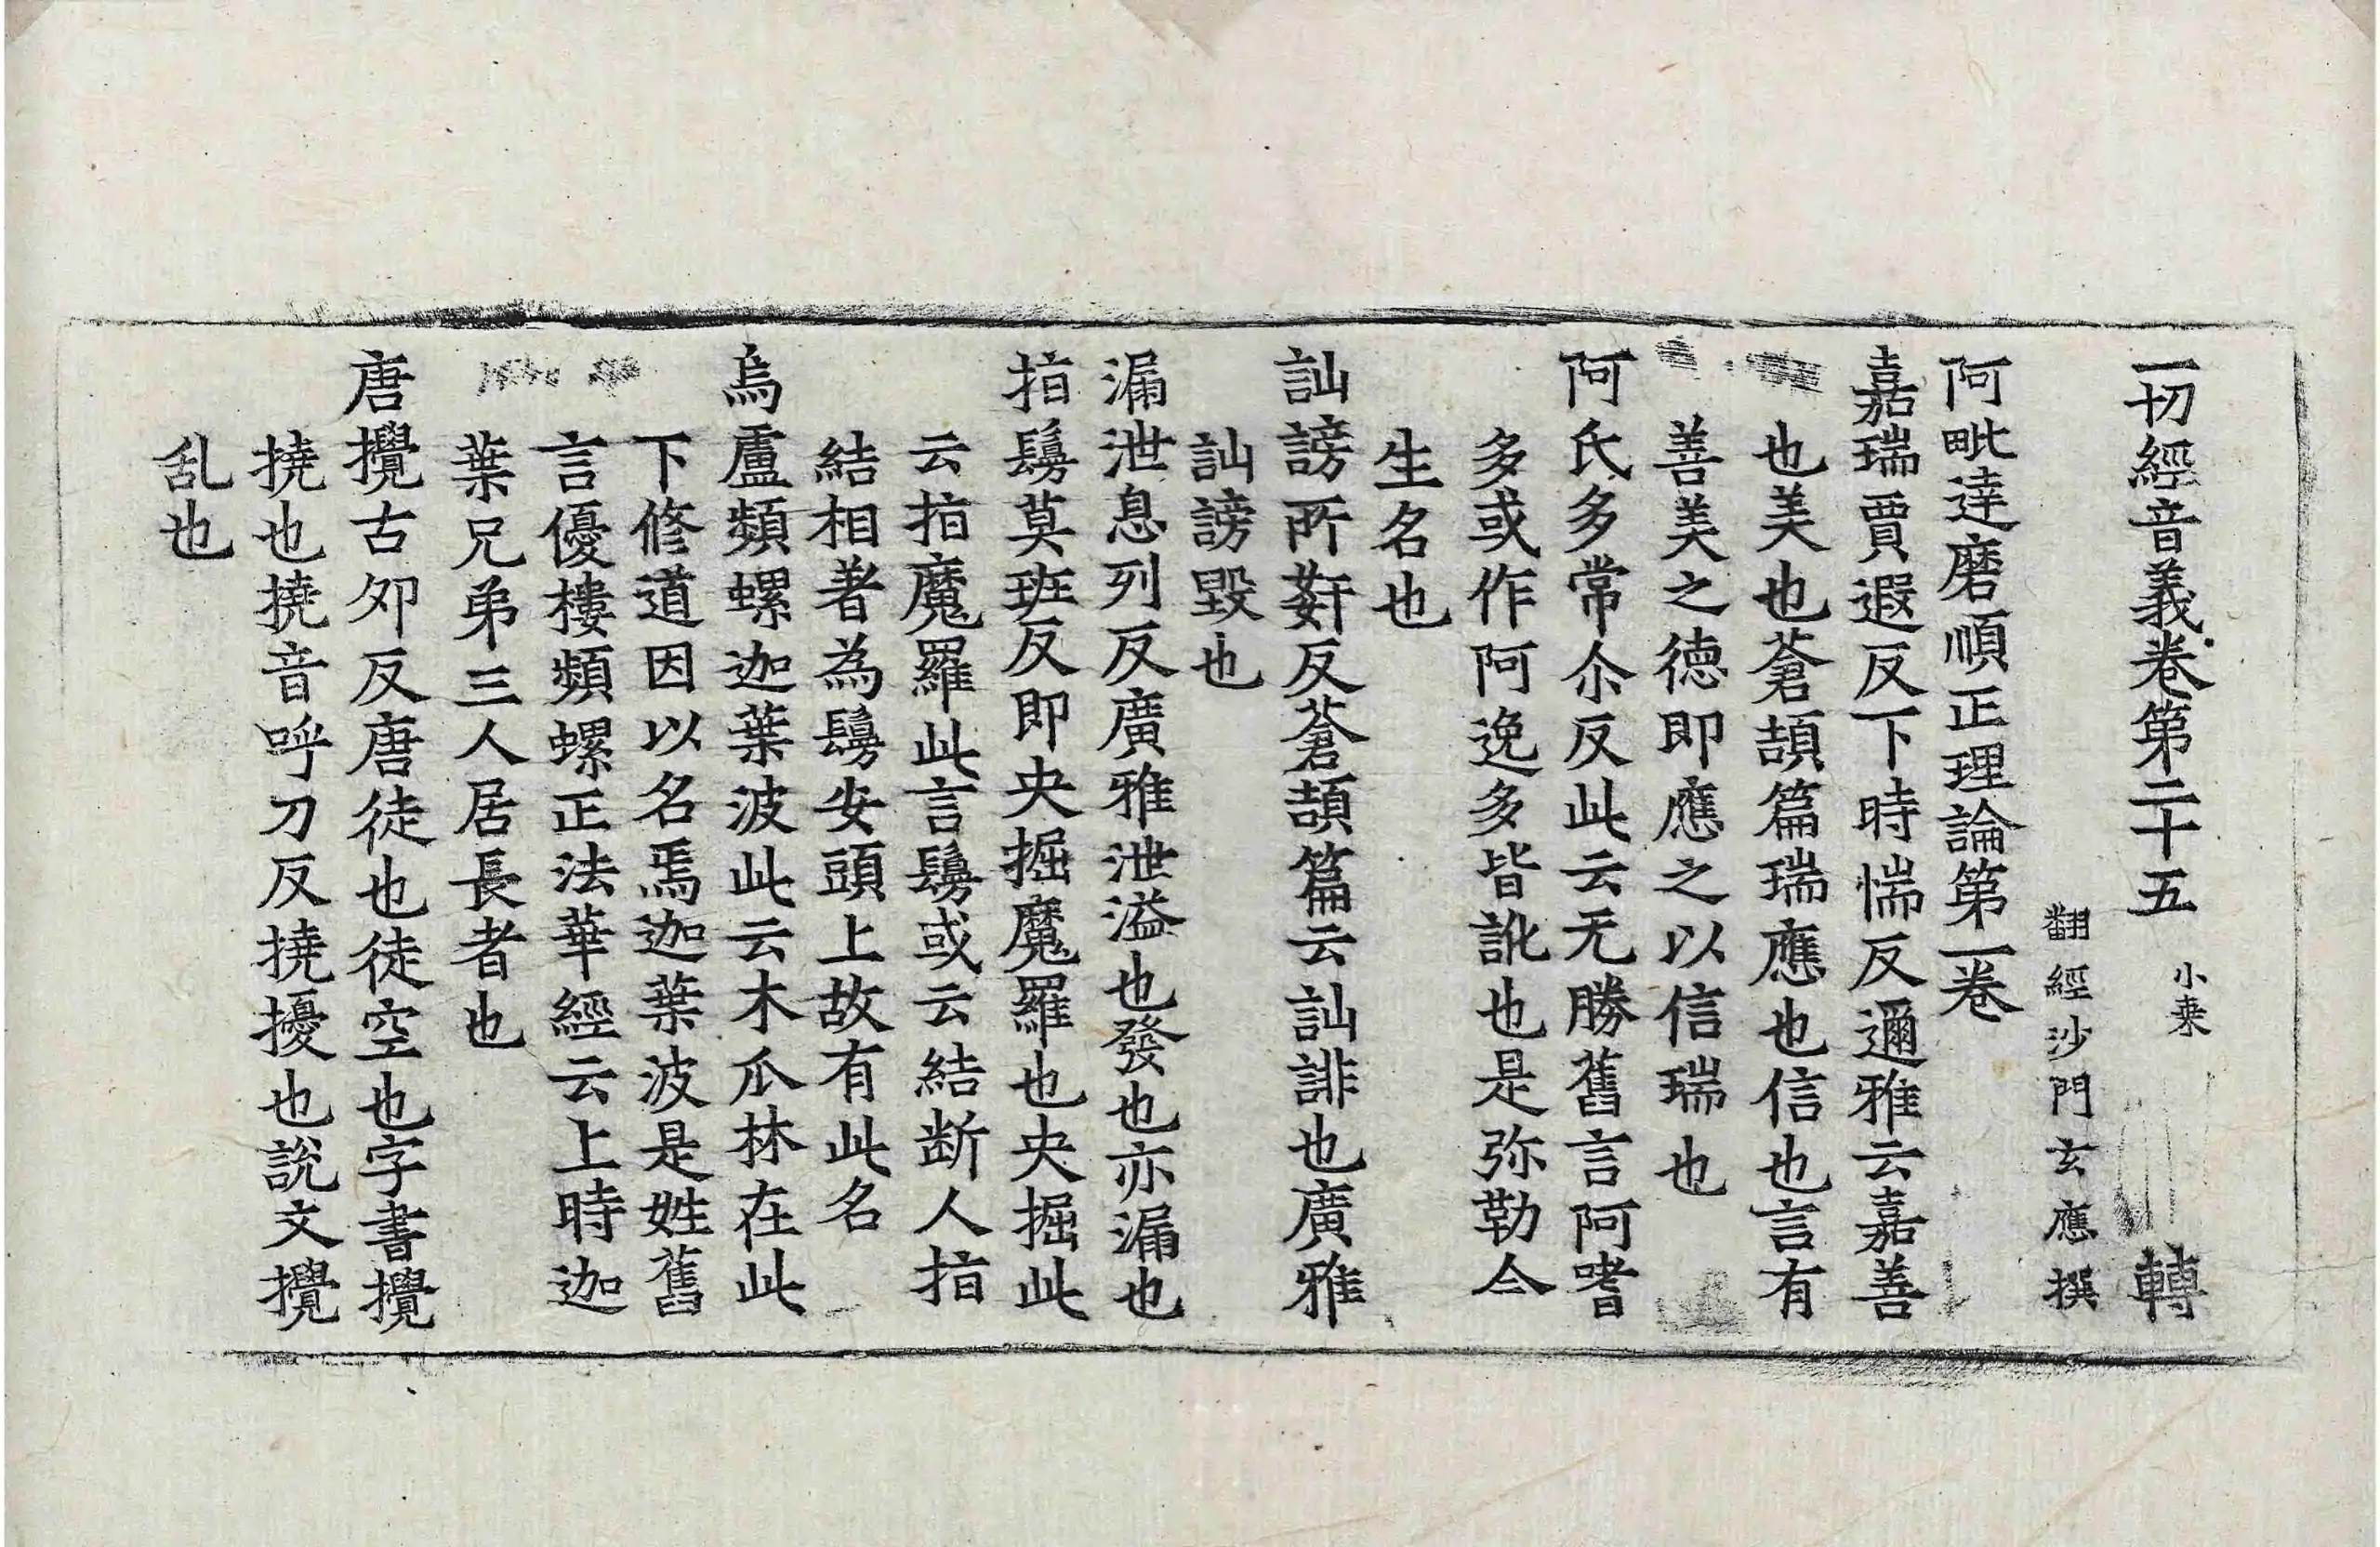 一切經音義卷第二十五 小乘 轉
翻經沙門玄應撰
阿毗達磨順正理論第一卷
嘉瑞賈遐反下時惴反邇雅云嘉善
也美也蒼頡篇瑞應也信也言有
善美之德即應之以信瑞也
阿氏多常尒反此云无勝舊言阿嗜
多或作阿逸多皆訛也是弥勒今
生名也
訕謗所姧反蒼頡篇云訕誹也廣雅
訕謗毀也
漏泄息列反廣雅泄溢也發也亦漏也
指鬘莫班反即央掘魔羅也央掘此
云指魔羅此言鬘或云結斷人指
結相著為鬘安頭上故有此名
烏盧頻螺迦葉波此云木瓜林在此
下修道因以名焉迦葉波是姓舊
言優樓頻螺正法華經云上時迦
葉兄弟三人居長者也
唐攪古夘反唐徒也徒空也字書攪
撓也撓音呼刀反撓擾也說文攪
乱也